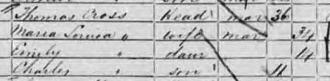 Thomas Cross Head mar 36
Maria Louisa " wife mar 34
Emily " daur 14
Charles " son 11